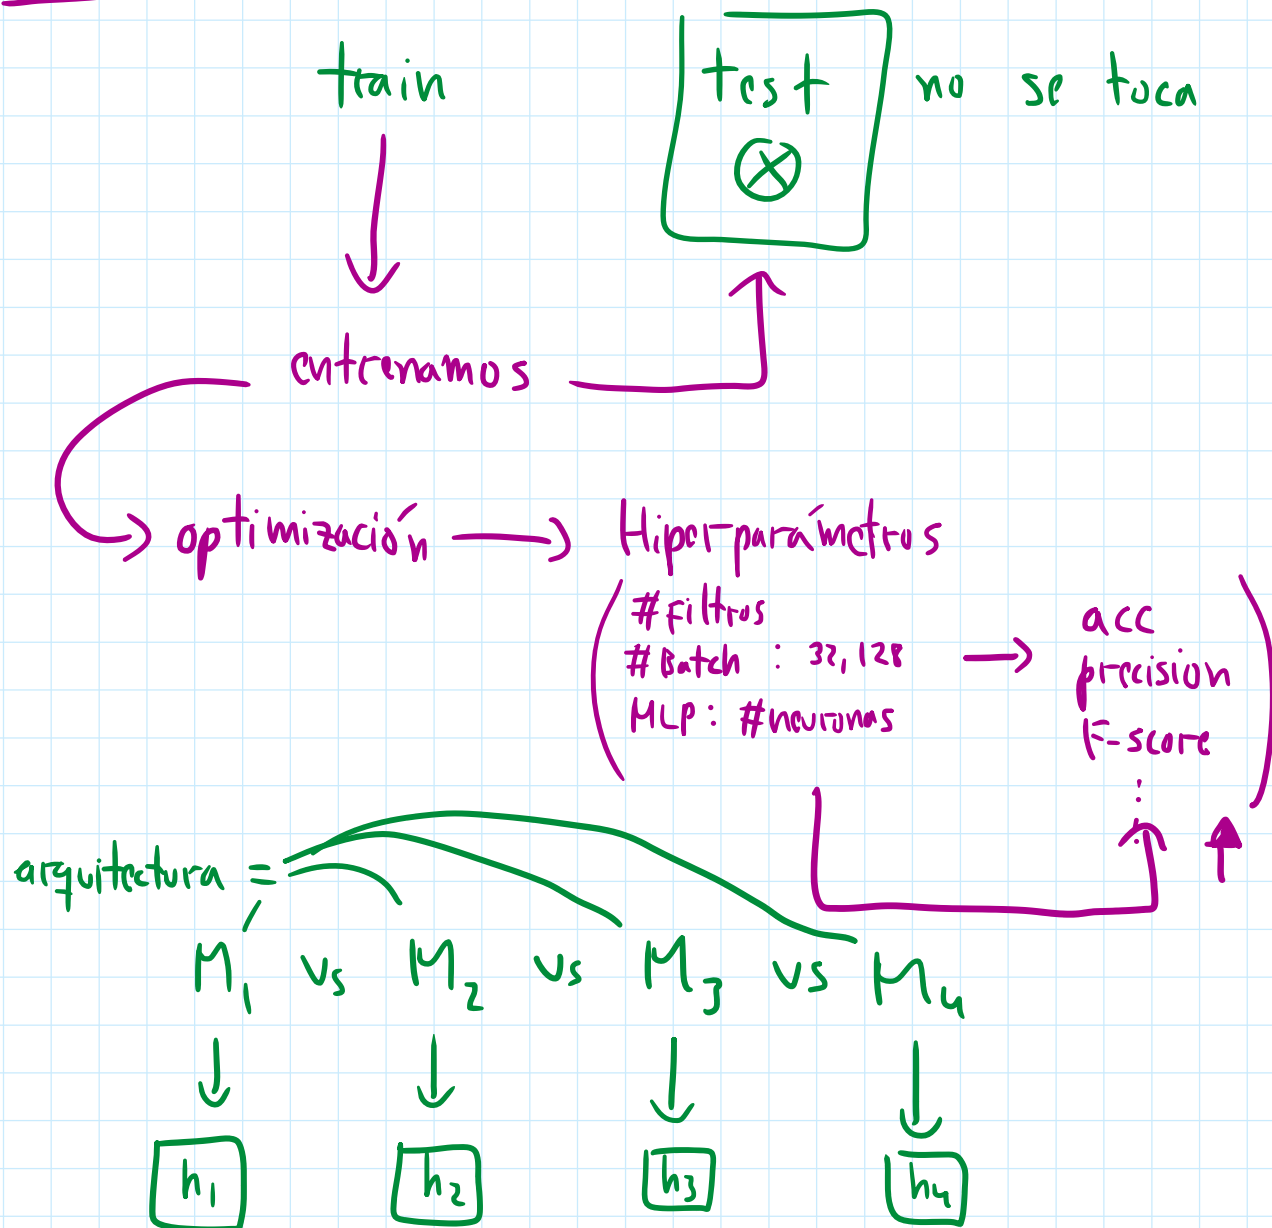 train test no se toca
entrenamos
optimización Hiperparámetros
#Filtros
#Batch : 32,128
MLP: #neuronas
acc
precision
F-score
arquitectura =
M1 vs M2 vs M3 vs M4
h1 h2 h3 h4